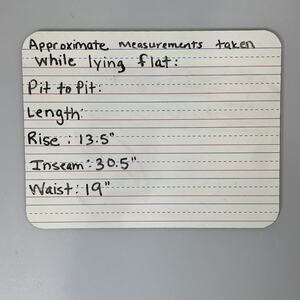 Approximate measurements taken
while lying flat:
Pit to Pit:
Length:
Rise: 13.5"
Inseam: 30.5"
Waist: 19"